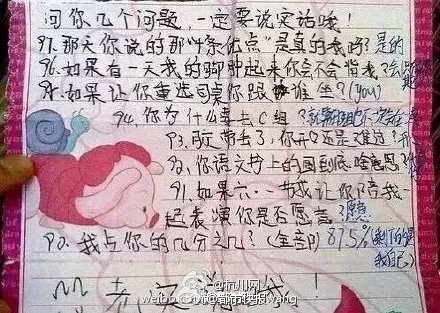 问你几个问题,一定要说实话哦!
97.那天你说的那"十条优点"是真的我吗?是的
96.如果有一天我的脚肿起来你会不会背我?会
95.如果让你重选同桌你跟谁坐?(you)
94.你为什么要去C组?
93.肩带丢了,你开心还是难过?
92.你语文书上的画到底啥意思?
91.如果六·一节我让你陪我
起表演你是否愿意?愿意
90.我占你的几分之几?(全部) 87.5%剩下的是
我自己
一定
!
杭州网
weibo.com/@都市快报wang